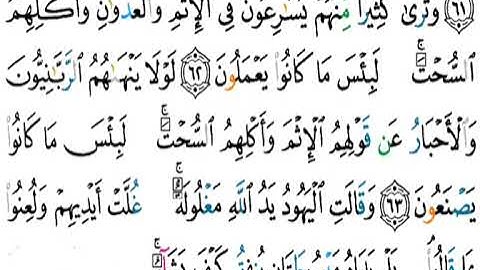 ﴿٦١﴾ وَتَرَىٰ كَثِيرًا مِّنْهُمْ يُسَارِعُونَ فِي الْإِثْمِ وَالْعُدْوَانِ وَأَكْلِهِمُ
السُّحْتَ ۚ لَبِئْسَ مَا كَانُوا يَعْمَلُونَ ﴿٦٢﴾ لَوْلَا يَنْهَاهُمُ الرَّبَّانِيُّونَ
وَالْأَحْبَارُ عَن قَوْلِهِمُ الْإِثْمَ وَأَكْلِهِمُ السُّحْتَ ۚ لَبِئْسَ مَا كَانُوا
يَصْنَعُونَ ﴿٦٣﴾ وَقَالَتِ الْيَهُودُ يَدُ اللَّهِ مَغْلُولَةٌ ۚ غُلَّتْ أَيْدِيهِمْ وَلُعِنُوا